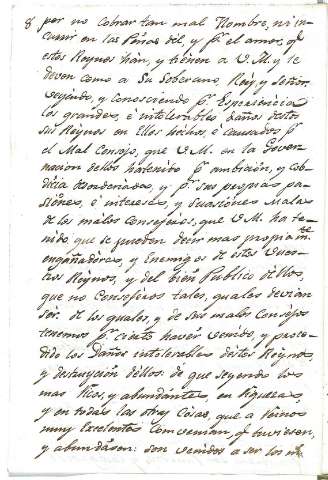 8 por no cobrar tan mal Nombre, ni in-
currir en las Penas dèl, y pr. el amor, q
estos Reynos hàn, y tienen a V.M. y le
deven como a Su Soberano, Rey, y Señor,
veyendo, y conosciendo pr. Esperiencia
los grandes, è intolerables daños destos
sus Reynos en Ellos hechos, è causados pr.
el Mal Consejo, que V.M. en la Gover-
nacion dellos hà tenido pr. ambición, y cob-
dicia desordenadas, y pr. sus propias pa-
siónes, è intereses, y ocasiónes malas
de los malos Consejeros, que V.M. ha te-
nido, que se pueden decir mas propiamte.
engañadores, y Enemigos de estos Vues-
tros Reynos, y del bien Publico dellos,
que no Consejeros tales, quales devian
ser: de los quales, y de sus malos Consejos
tenemos pr. cierto haver venido, y proce-
dido los Daños intolerables destos Reynos,
y destruycion dellos: de que seyendo los
mas Ricos, y abundantes, en riquezas,
y en todas las otras Cosas, que a Reinos
muy Excelentes convenian, q tuviesen,
y abundasen: son venidos a ser los